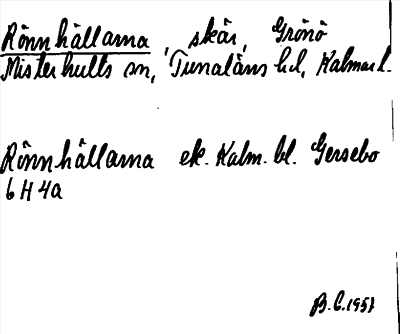 Rönnhällarna, skär, Grönö
Misterhults sn, Tunaläns hd, Kalmar l.
Rönnhällarna ek. Kalm. bl. Gersebo
6H4a
B.C. 1957